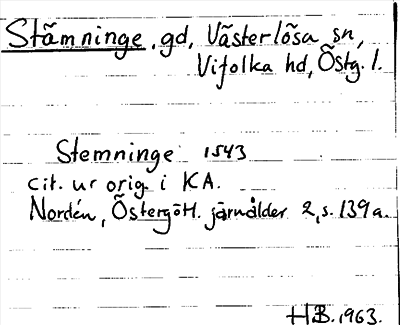 Stämninge, gd, Västerlösa sn,
Vifolka hd, Östg. l.
Stemninge 1543
cit. ur orig. i KA.
Nordén, Östergötl. järnålder 2, s. 139 a.
HB. 1963.